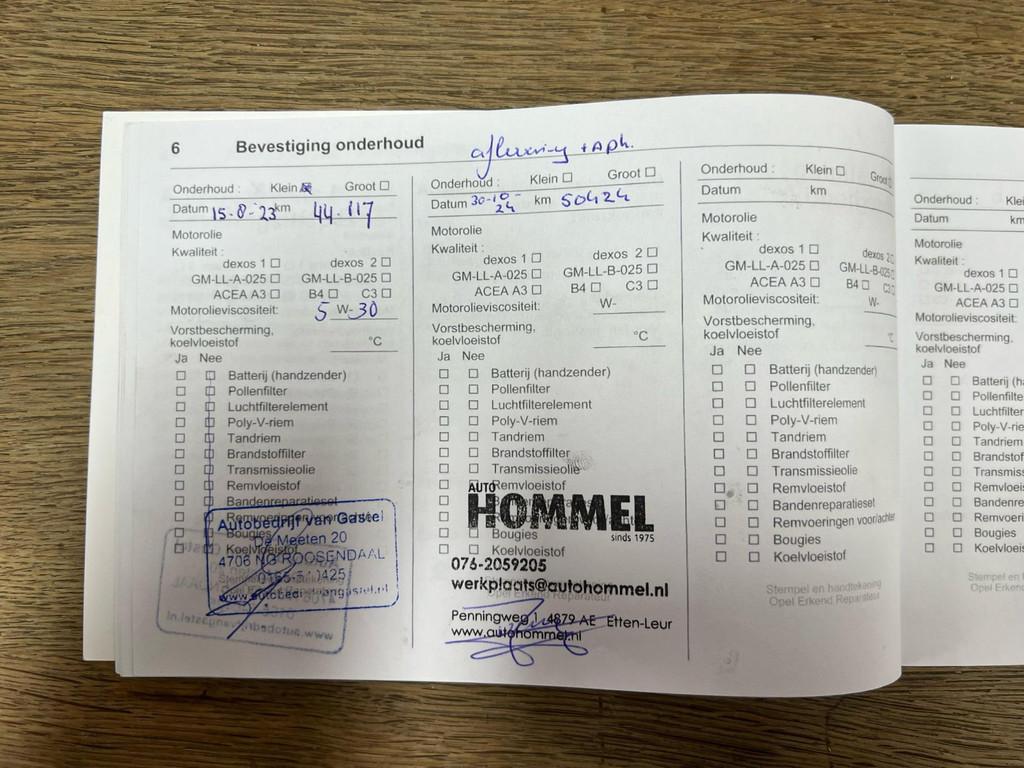 6 Bevestiging onderhoud
aflevering + APK.
Onderhoud : Klein ☒ Groot ☐
Datum 15-8-'23 km 44.117
Motorolie
Kwaliteit :
dexos 1 ☐ dexos 2 ☐
GM-LL-A-025 ☐ GM-LL-B-025 ☐
ACEA A3 ☐ B4 ☐ C3 ☐
Motorolieviscositeit: 5 W-30
Vorstbescherming,
koelvloeistof °C
Ja Nee
☐ ☐ Batterij (handzender)
☐ ☐ Pollenfilter
☐ ☐ Luchtfilterelement
☐ ☐ Poly-V-riem
☐ ☐ Tandriem
☐ ☐ Brandstoffilter
☐ ☐ Transmissieolie
☐ ☐ Remvloeistof
☐ ☐ Bandenreparatieset
☐ ☐ Remvoeringen voor/achter
☐ ☐ Bougies
☐ ☐ Koelvloeistof
Autobedrijf van Gastel
De Meeten 20
4706 NG ROOSENDAAL
www.autobedrijfvangastel.nl
Onderhoud : Klein ☐ Groot ☐
Datum 30-10-24 km 50424
Motorolie
Kwaliteit :
dexos 1 ☐ dexos 2 ☐
GM-LL-A-025 ☐ GM-LL-B-025 ☐
ACEA A3 ☐ B4 ☐ C3 ☐
Motorolieviscositeit: W-
Vorstbescherming,
koelvloeistof °C
Ja Nee
☐ ☐ Batterij (handzender)
☐ ☐ Pollenfilter
☐ ☐ Luchtfilterelement
☐ ☐ Poly-V-riem
☐ ☐ Tandriem
☐ ☐ Brandstoffilter
☐ ☐ Transmissieolie
☐ ☐ Remvloeistof
☐ ☐ Bougies
☐ ☐ Koelvloeistof
AUTO
HOMMEL
sinds 1975
076-2059205
werkplaats@autohommel.nl
Penningweg 1 4879 AE Etten-Leur
www.autohommel.nl
Onderhoud : Klein ☐ Groot
Datum km
Motorolie
Kwaliteit :
dexos 1 ☐ dexos 2 ☐
GM-LL-A-025 ☐ GM-LL-B-025
ACEA A3 ☐ B4 ☐ C3 ☐
Motorolieviscositeit: W-
Vorstbescherming,
koelvloeistof °C
Ja Nee
☐ ☐ Batterij (handzender)
☐ ☐ Pollenfilter
☐ ☐ Luchtfilterelement
☐ ☐ Poly-V-riem
☐ ☐ Tandriem
☐ ☐ Brandstoffilter
☐ ☐ Transmissieolie
☐ ☐ Remvloeistof
☐ ☐ Bandenreparatieset
☐ ☐ Remvoeringen voor/achter
☐ ☐ Bougies
☐ ☐ Koelvloeistof
Stempel en handtekening
Opel Erkend Reparateur
Onderhoud : Klei
Datum km
Motorolie
Kwaliteit :
dexos 1 ☐
GM-LL-A-025 ☐
ACEA A3 ☐
Motorolieviscositeit:
Vorstbescherming,
koelvloeistof
Ja Nee
☐ ☐ Batterij (ha
☐ ☐ Pollenfilte
☐ ☐ Luchtfilter
☐ ☐ Poly-V-rie
☐ ☐ Tandriem
☐ ☐ Brandstof
☐ ☐ Transmiss
☐ ☐ Remvloeis
☐ ☐ Bandenre
☐ ☐ Remvoeri
☐ ☐ Bougies
☐ ☐ Koelvloeis
Stempel en h
Opel Erkend